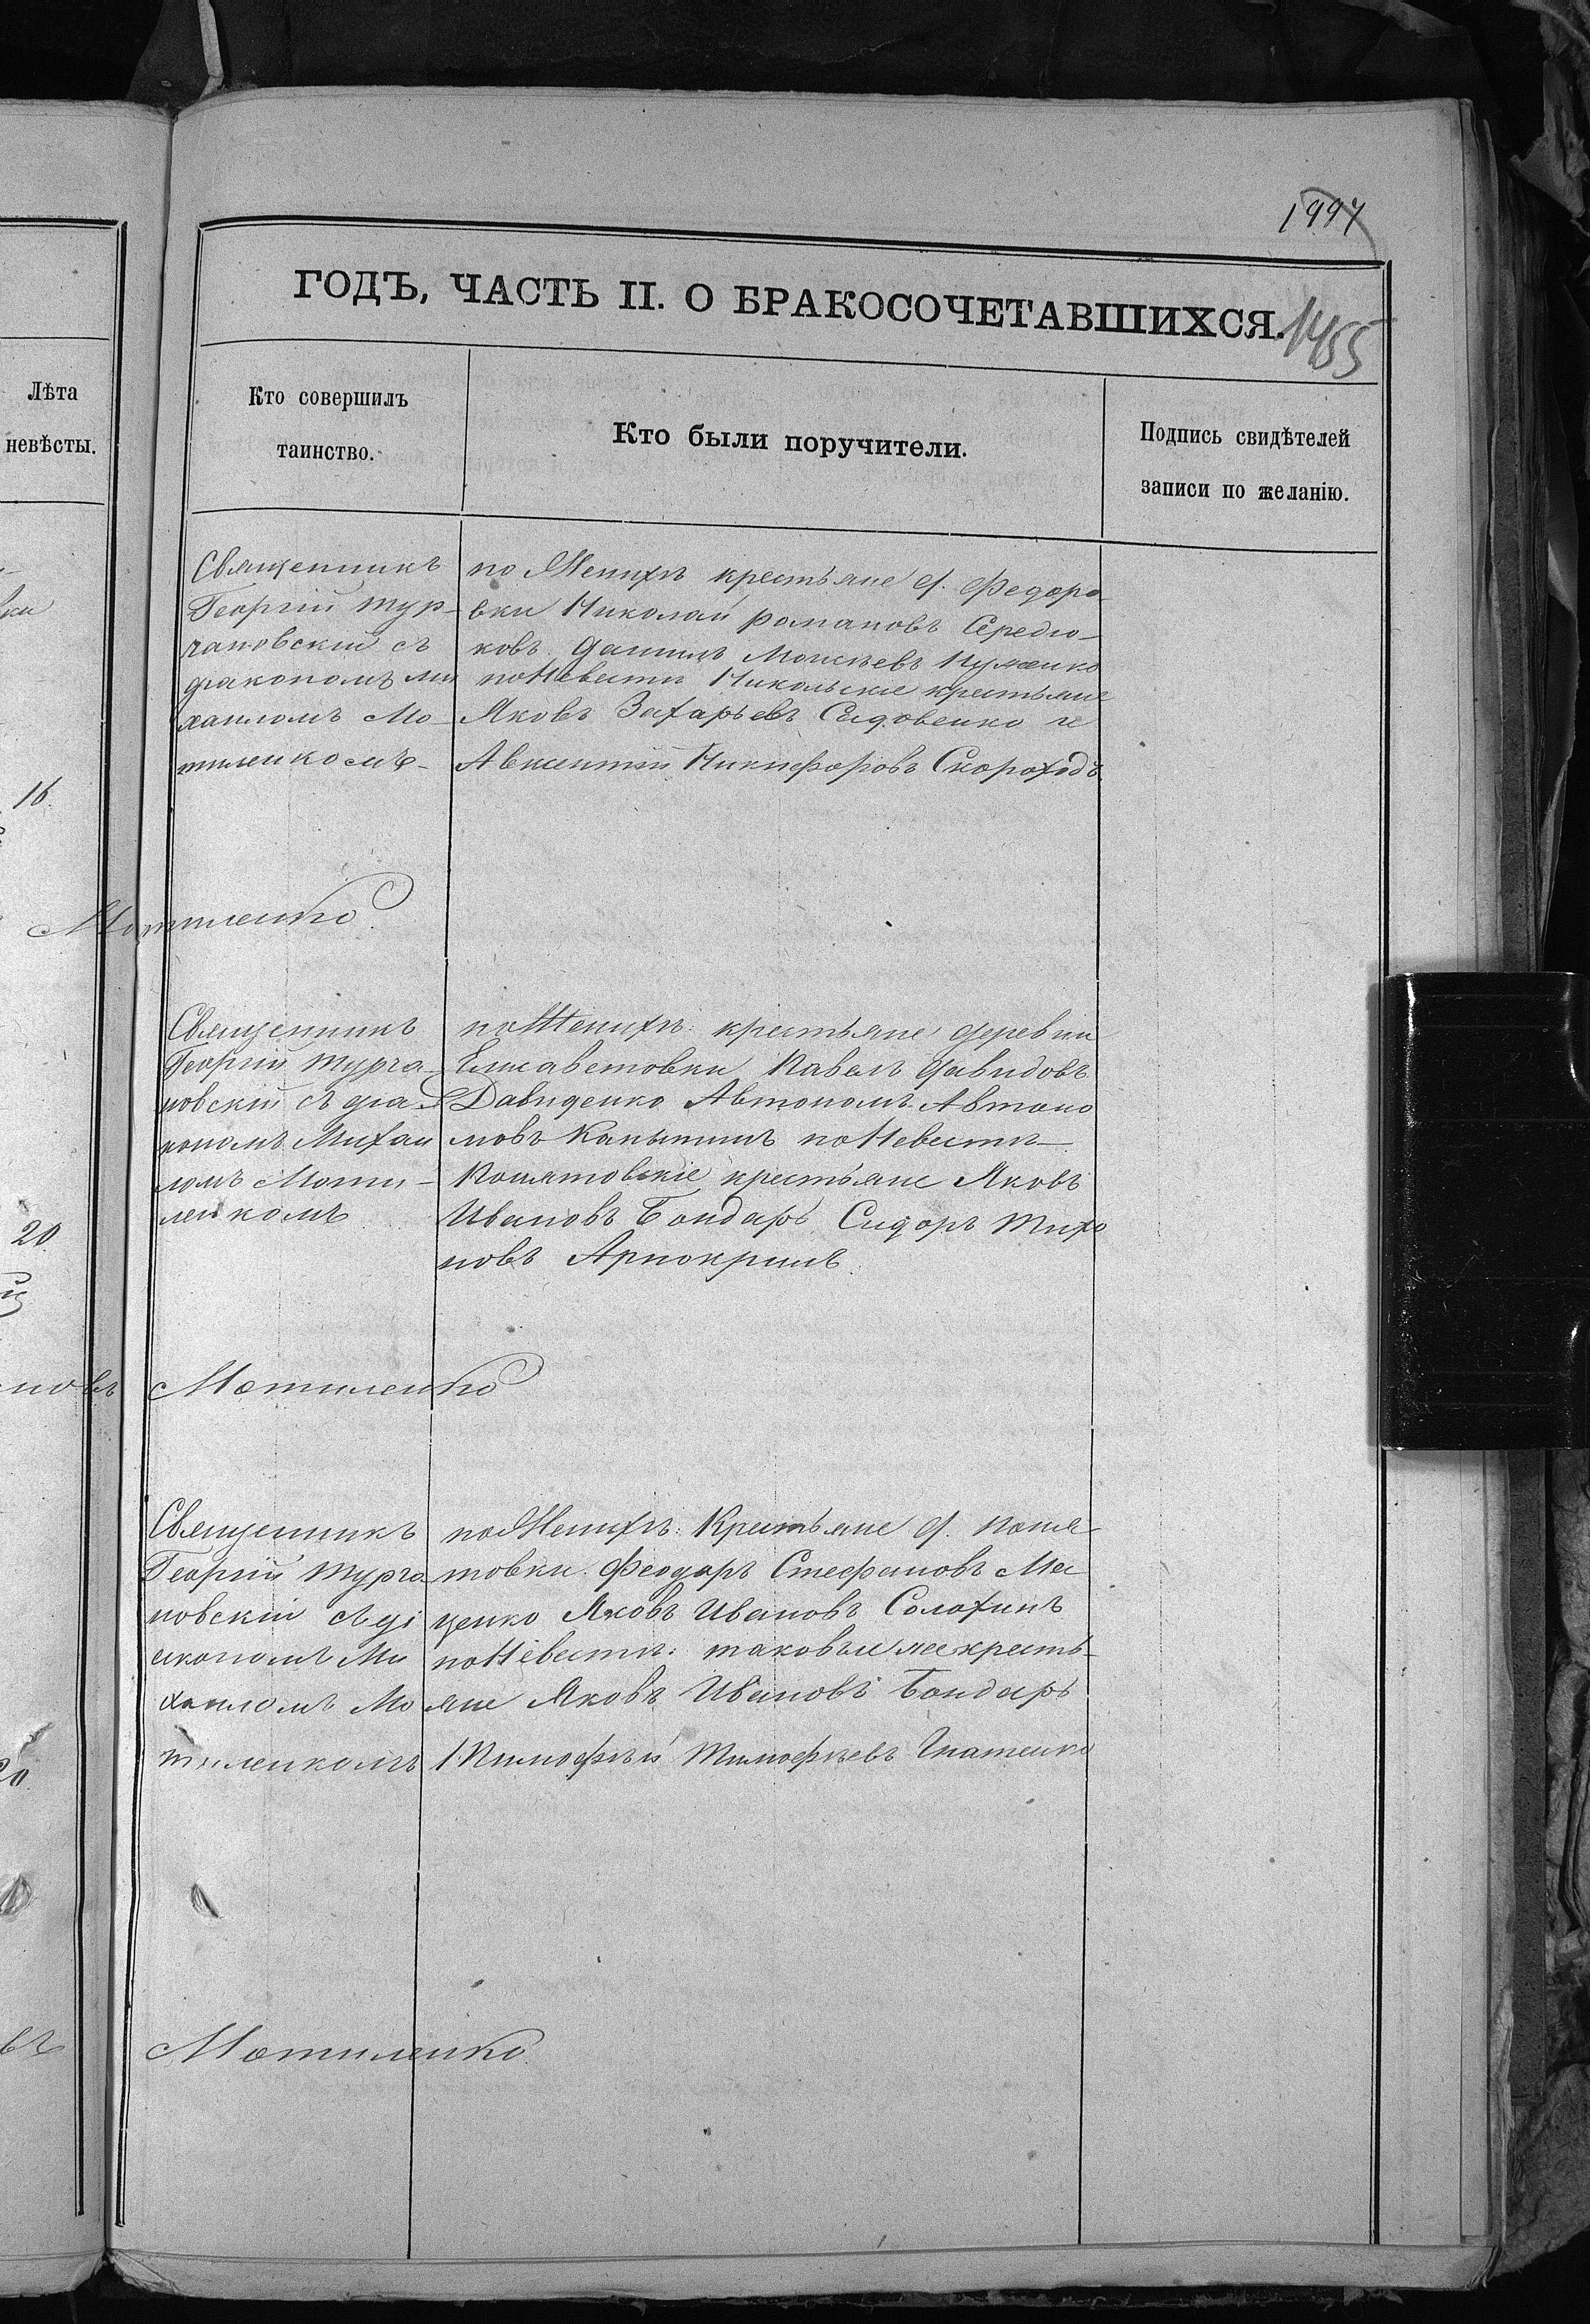 1997
ГОДЪ, ЧАСТЬ II. О БРАКОСОЧЕТАВШИХСЯ.
1455
Лѣта
невѣсты.
Кто совершилъ
таинство.
Кто были поручители.
Подпись свидѣтелей
записи по желанію.
16.
20.
новъ
20.
въ
Священникъ
Георгій Тур-
чановскій съ
диакономъ Ми
хаиломъ Мо-
тиленкомъ-
по Женихѣ крестьяне д. Федоро-
вки Николай Романовъ Середю-
ковъ Даниилъ Моисѣевъ
по Невестѣ Никольскіе крестьяне
Яковъ Захарьевъ Сидовенко и
Авксентій Никифоровъ Скороходъ.
Мотиленко.
Священникъ
Георгій Турча-
новскій съ диа-
кономъ Михаи
ломъ Моти-
ленкомъ
по Женихѣ: крестьяне деревни
Елисаветовки Павелъ Давидовъ
Давиденко Автономъ Автоно
мовъ Капытинъ по Невестѣ-
Понятовскіе крестьяне Яковъ
Ивановъ Бондарь Сидоръ Тихо
новъ
Мотиленко
Священникъ
Георгій Турча
новскій съ ді
акономъ Ми
хаиломъ Мо
тиленкомъ
по Женихѣ: Крестьяне д. Поня-
товки Феодоръ Стефановъ Ма
ценко Яковъ Ивановъ Солохинъ
по Невестѣ: таковые же кресть-
яне Яковъ Ивановъ Бондарь
Тимофѣй Тимофѣевъ Гнатенко
Мотиленко.